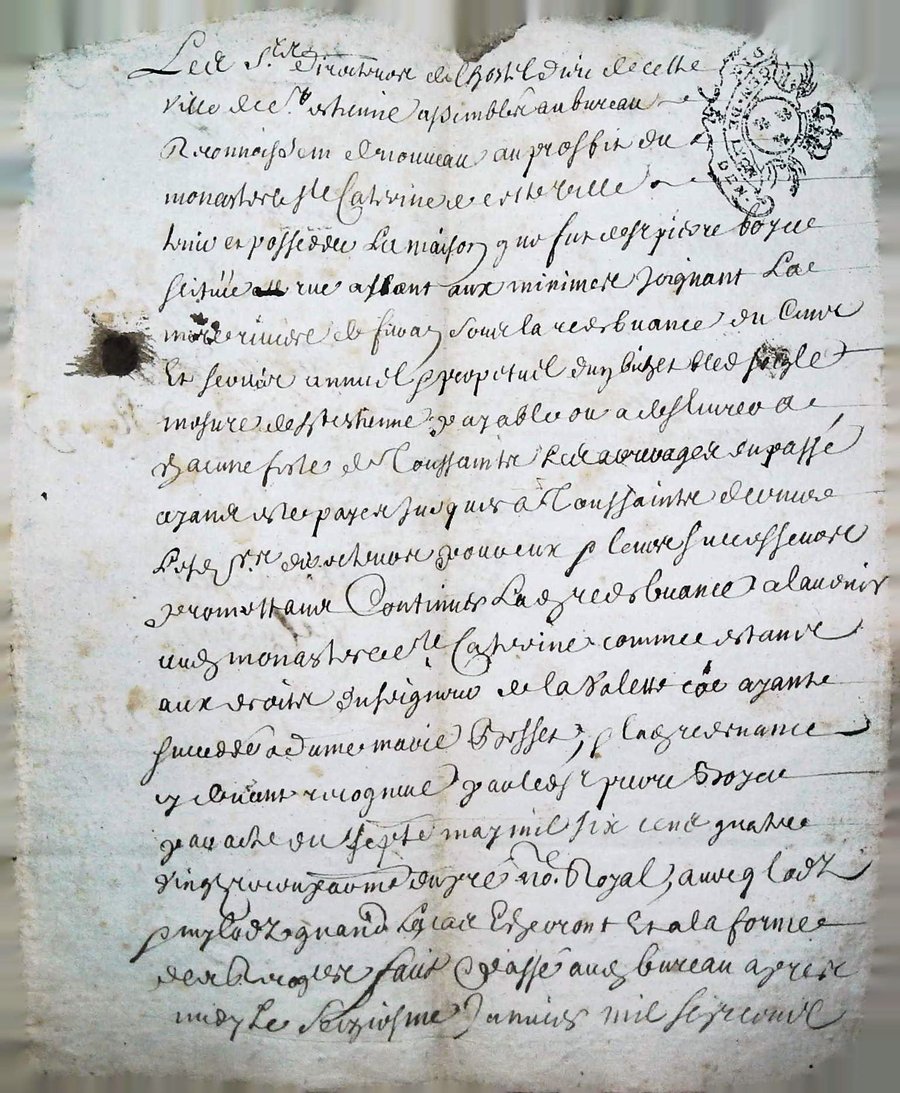 Les Srs directeurs de lhostel dieu de cette
ville de St estienne assemblés au bureau
Reconnoissent de nouveau au proffit du
monastere Ste Caterine de cette ville
tenir et posseder La maison que fut de sr pierre boyer
scituée rue allant aux minimes Joignant La
riviere de furan, sous la redebvance de Cens
Et servis annuel p perpetuel dun bichet bled seigle
mesure de St Estienne payable ou a deslivrer a
chacune feste de Toussaints Les arrerages du passé
ayant este payes Jusques a Toussaints derniere
Lesd Srs directeurs pour eux p leurs successeurs
promettant Continuer Lad redebvance a ladvenir
aud monastere Ste Caterine comme estant
aux droits du seigneur de la Valette ayant
succedé a dame marie Besset, p lad redevance
y devant recogneue par led sr pierre Boyer
par acte du septe may mil six cent quatre
vingt no. Royal, avec lodz
p my lodz quand Le cas Escheront Et a la forme
des Terriers fait p passé aud bureau apres
midy Le Seiziesme Janvier mil sept cent